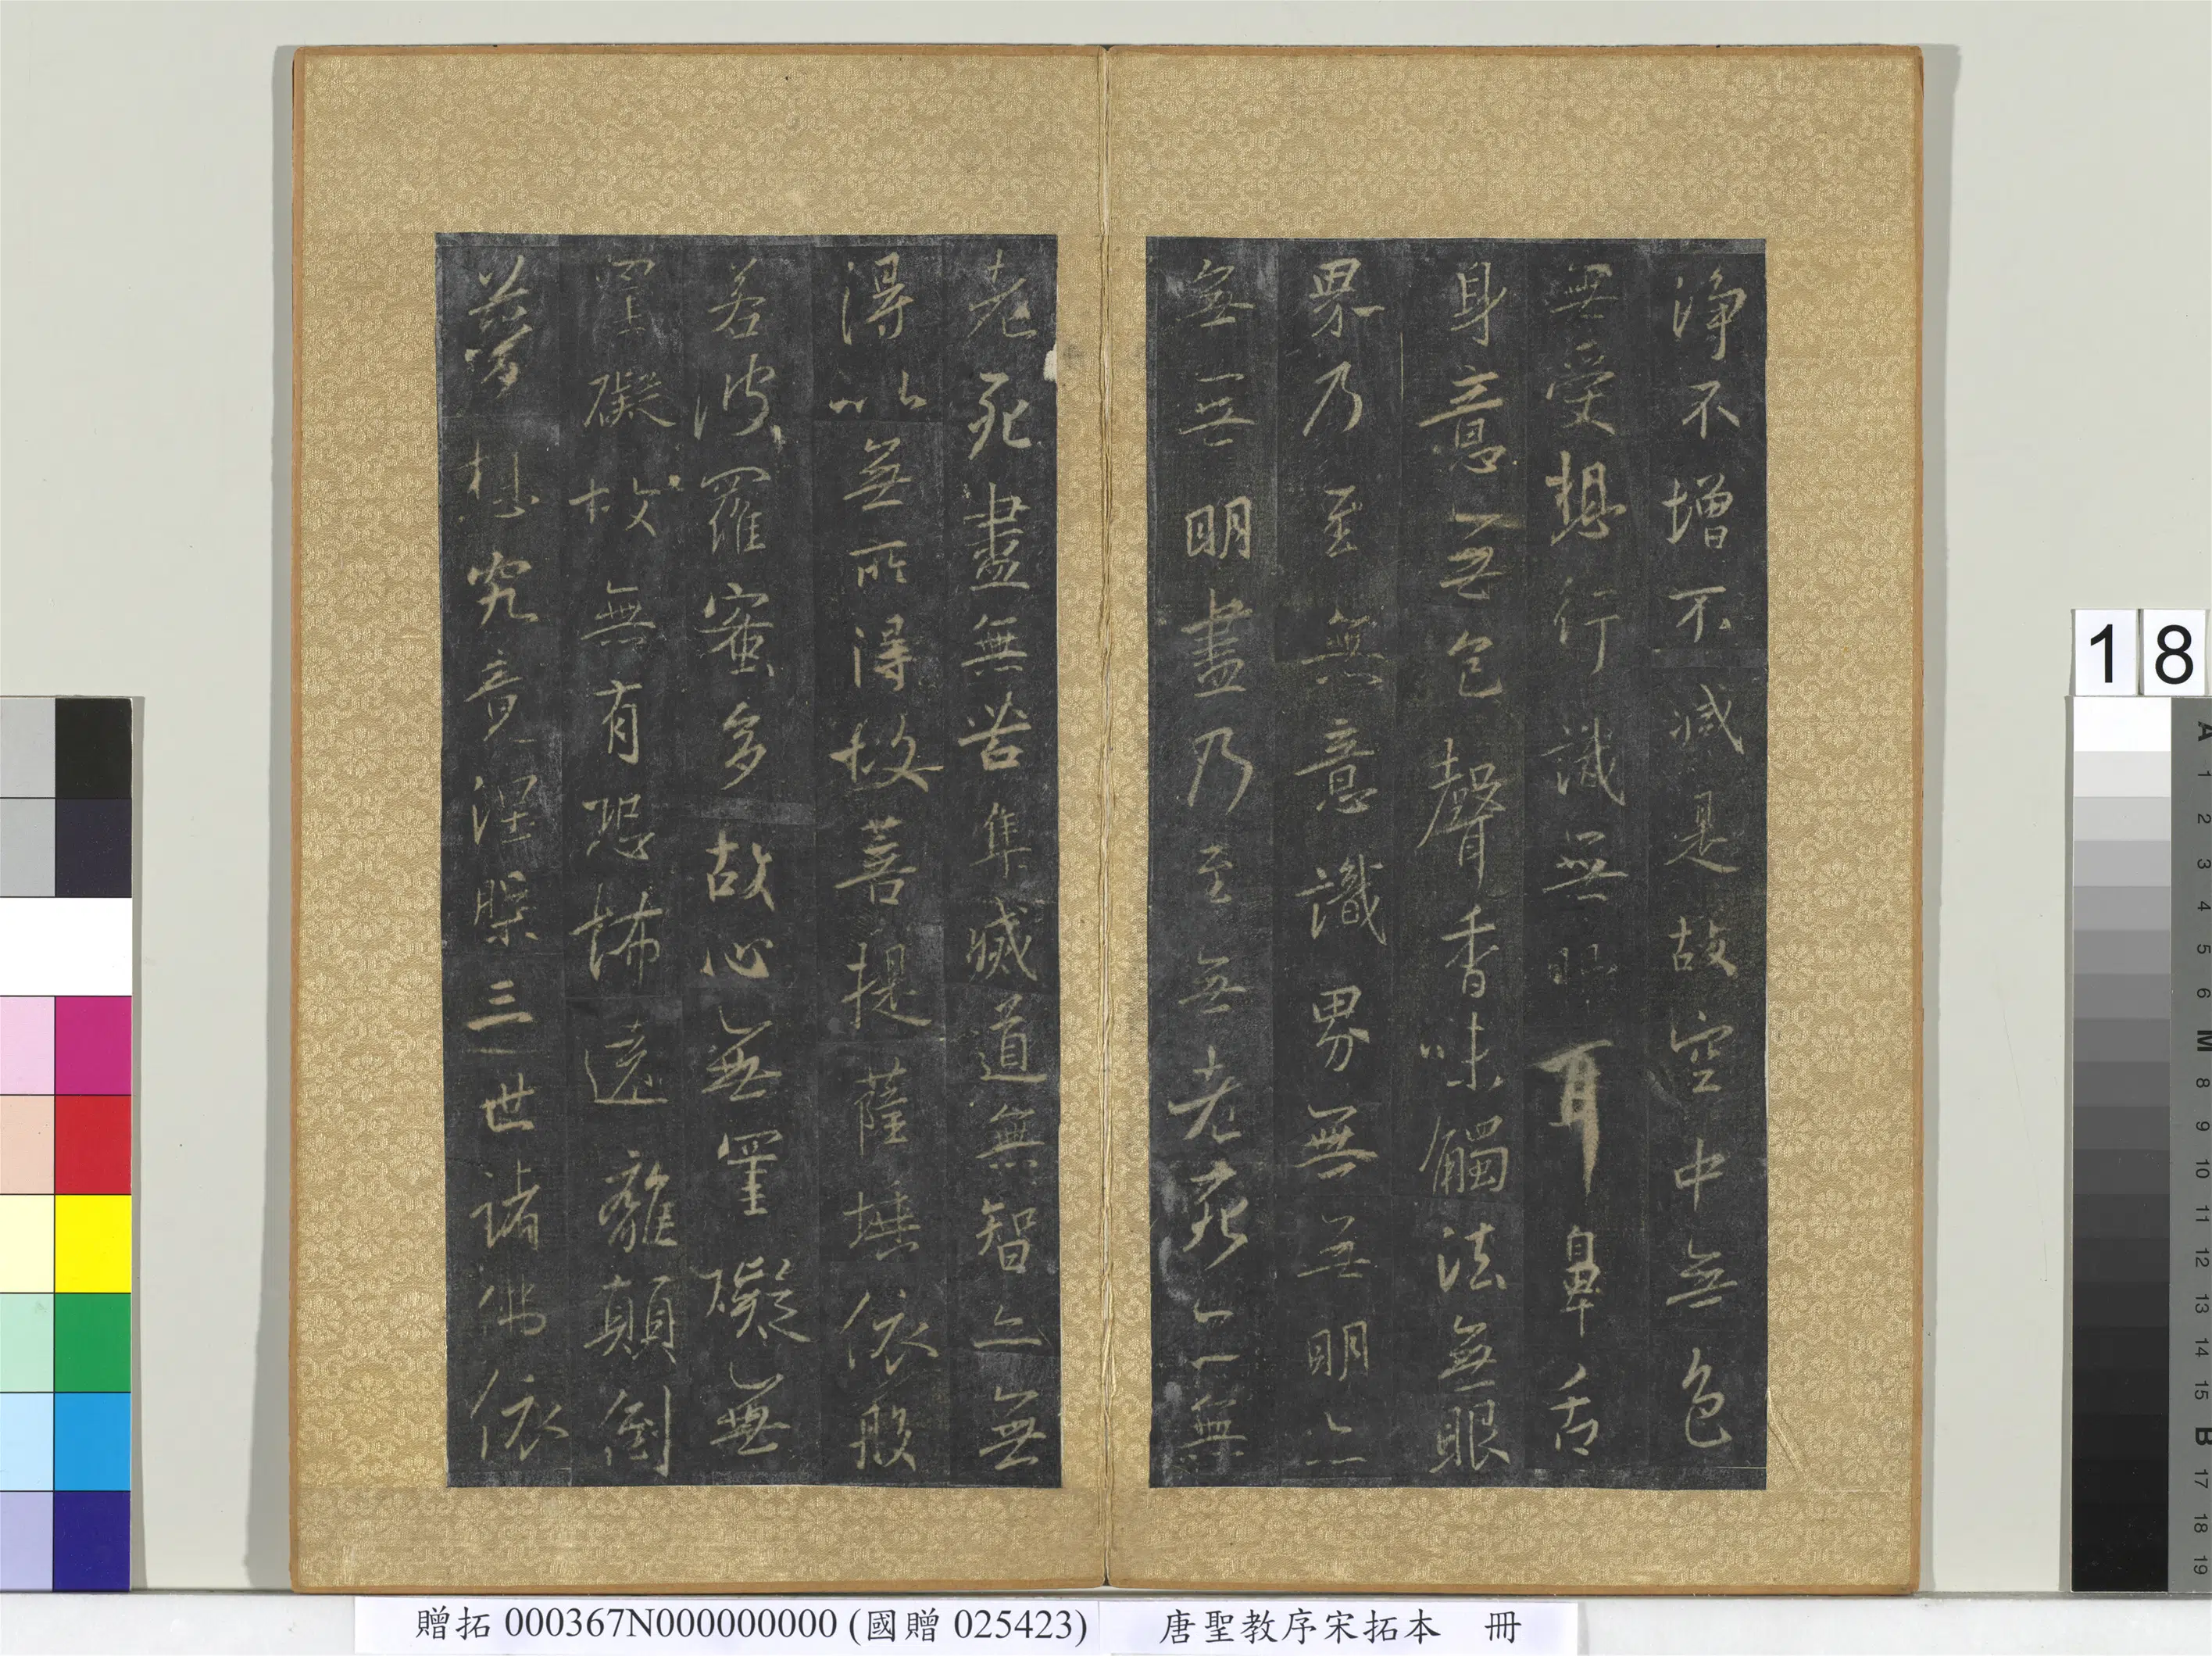 淨不增不減是故空中無色
無受想行識無眼耳鼻舌
身意無色聲香味觸法無眼
界乃至無意識界無無明亦
無無明盡乃至無老死亦無
老死盡無苦集滅道無智亦無
得以無所得故菩提薩埵依般
若波羅蜜多故心無罣礙無
罣礙故無有恐怖遠離顛倒
夢想究竟涅槃三世諸佛依
贈拓 000367N000000000 (國贈 025423) 唐聖教序宋拓本 冊
18
A 1 2 3 4 5 6 M 8 9 10 11 12 13 14 15 B 17 18 19